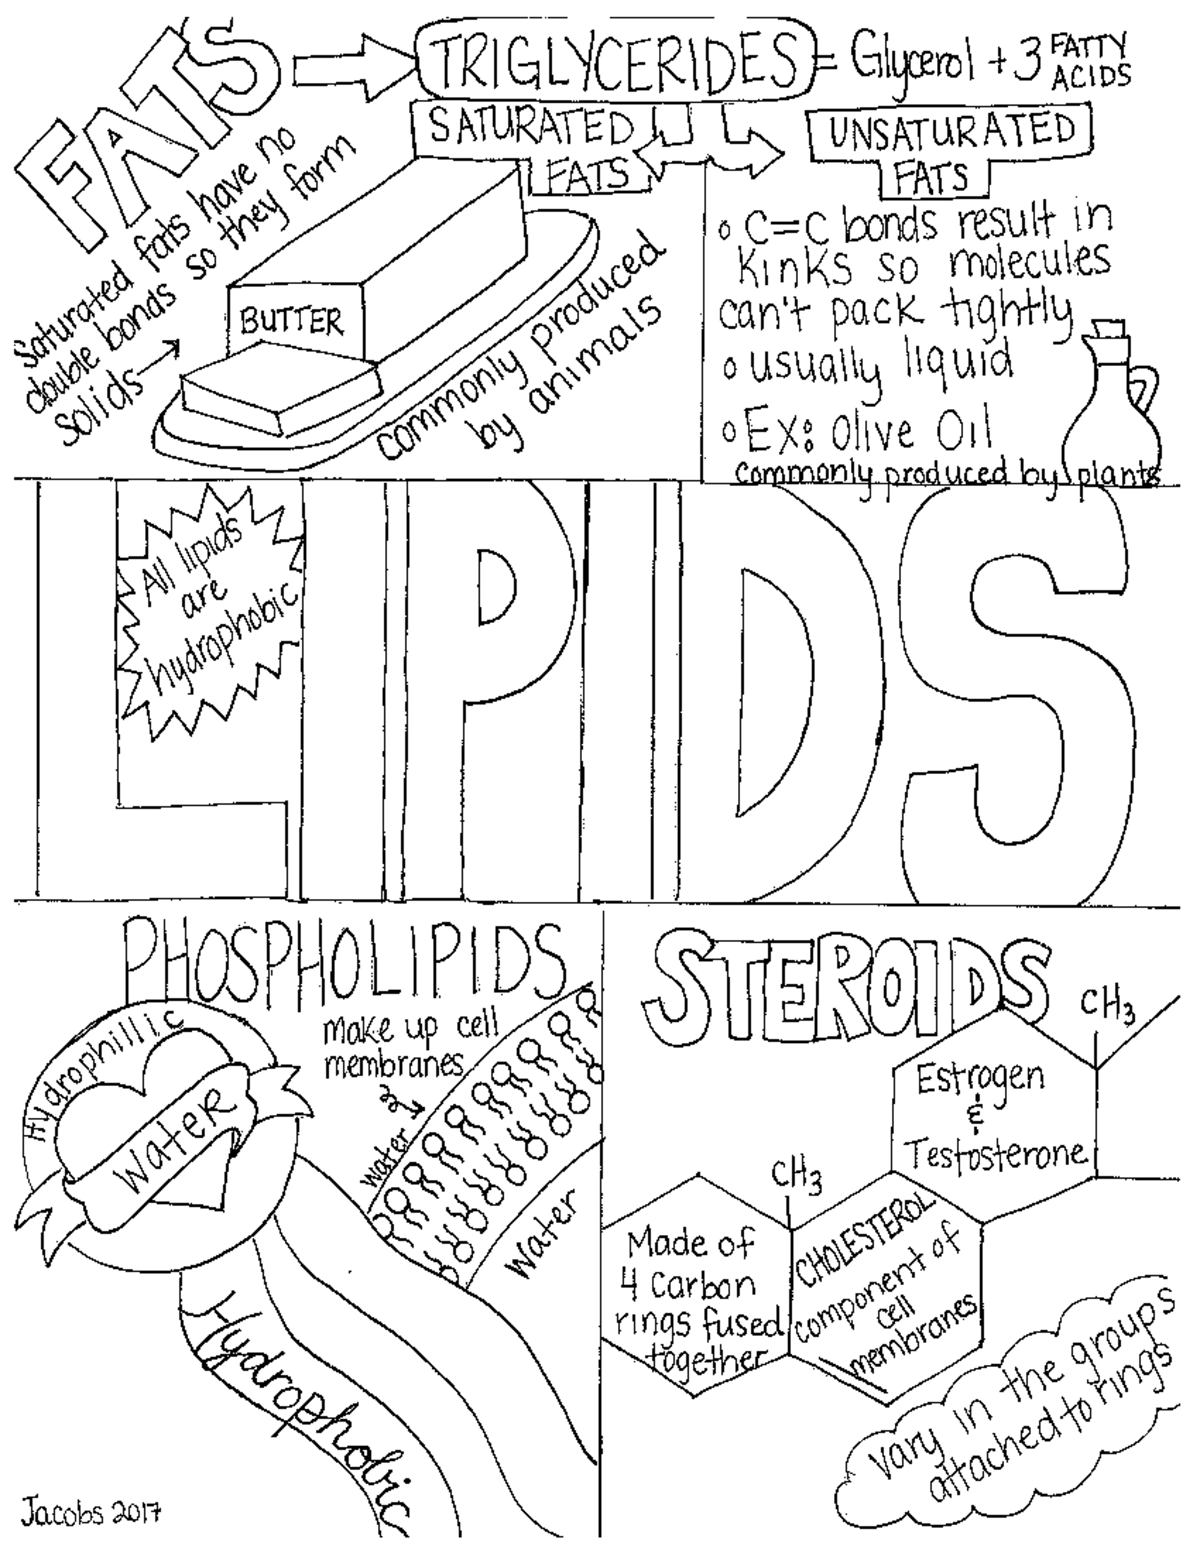 FATS
TRIGLYCERIDES = Glycerol + 3 FATTY ACIDS
SATURATED
FATS
UNSATURATED
FATS
Saturated fats have no
double bonds so they form
solids
BUTTER
commonly produced
by animals
C=C bonds result in
kinks so molecules
can't pack tightly
usually liquid
Ex: Olive Oil
commonly produced by plants
LIPIDS
All lipids
are
hydrophobic
PHOSPHOLIPIDS
Hydrophillic
Water
make up cell
membranes
water
Water
Hydrophobic
Jacobs 2017
STEROIDS
CH3
Estrogen
&
Testosterone
CH3
Made of
4 Carbon
rings fused
together
CHOLESTEROL
component of
cell
membranes
vary in the groups
attached to rings